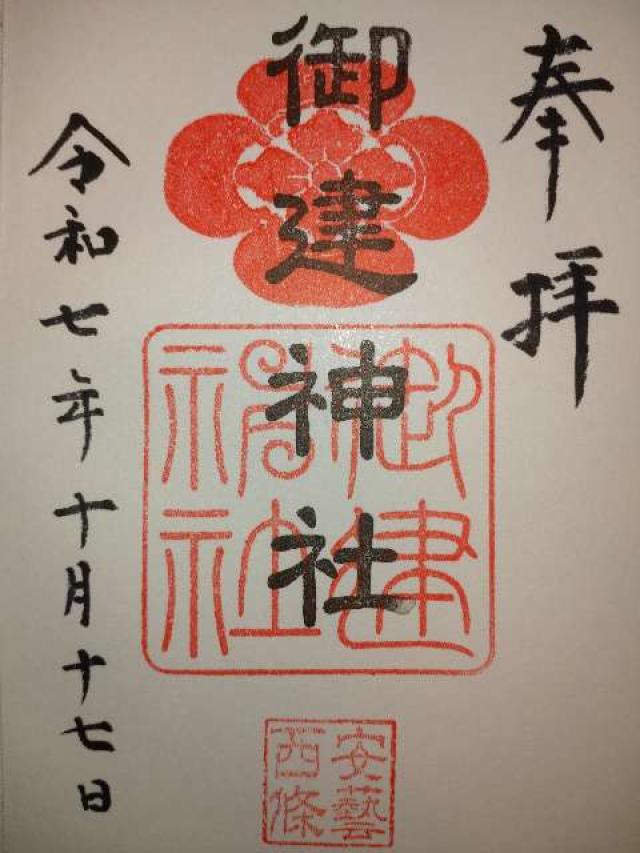 奉拝
御建神社
御建神社
安藝
西條
令和七年十月十七日